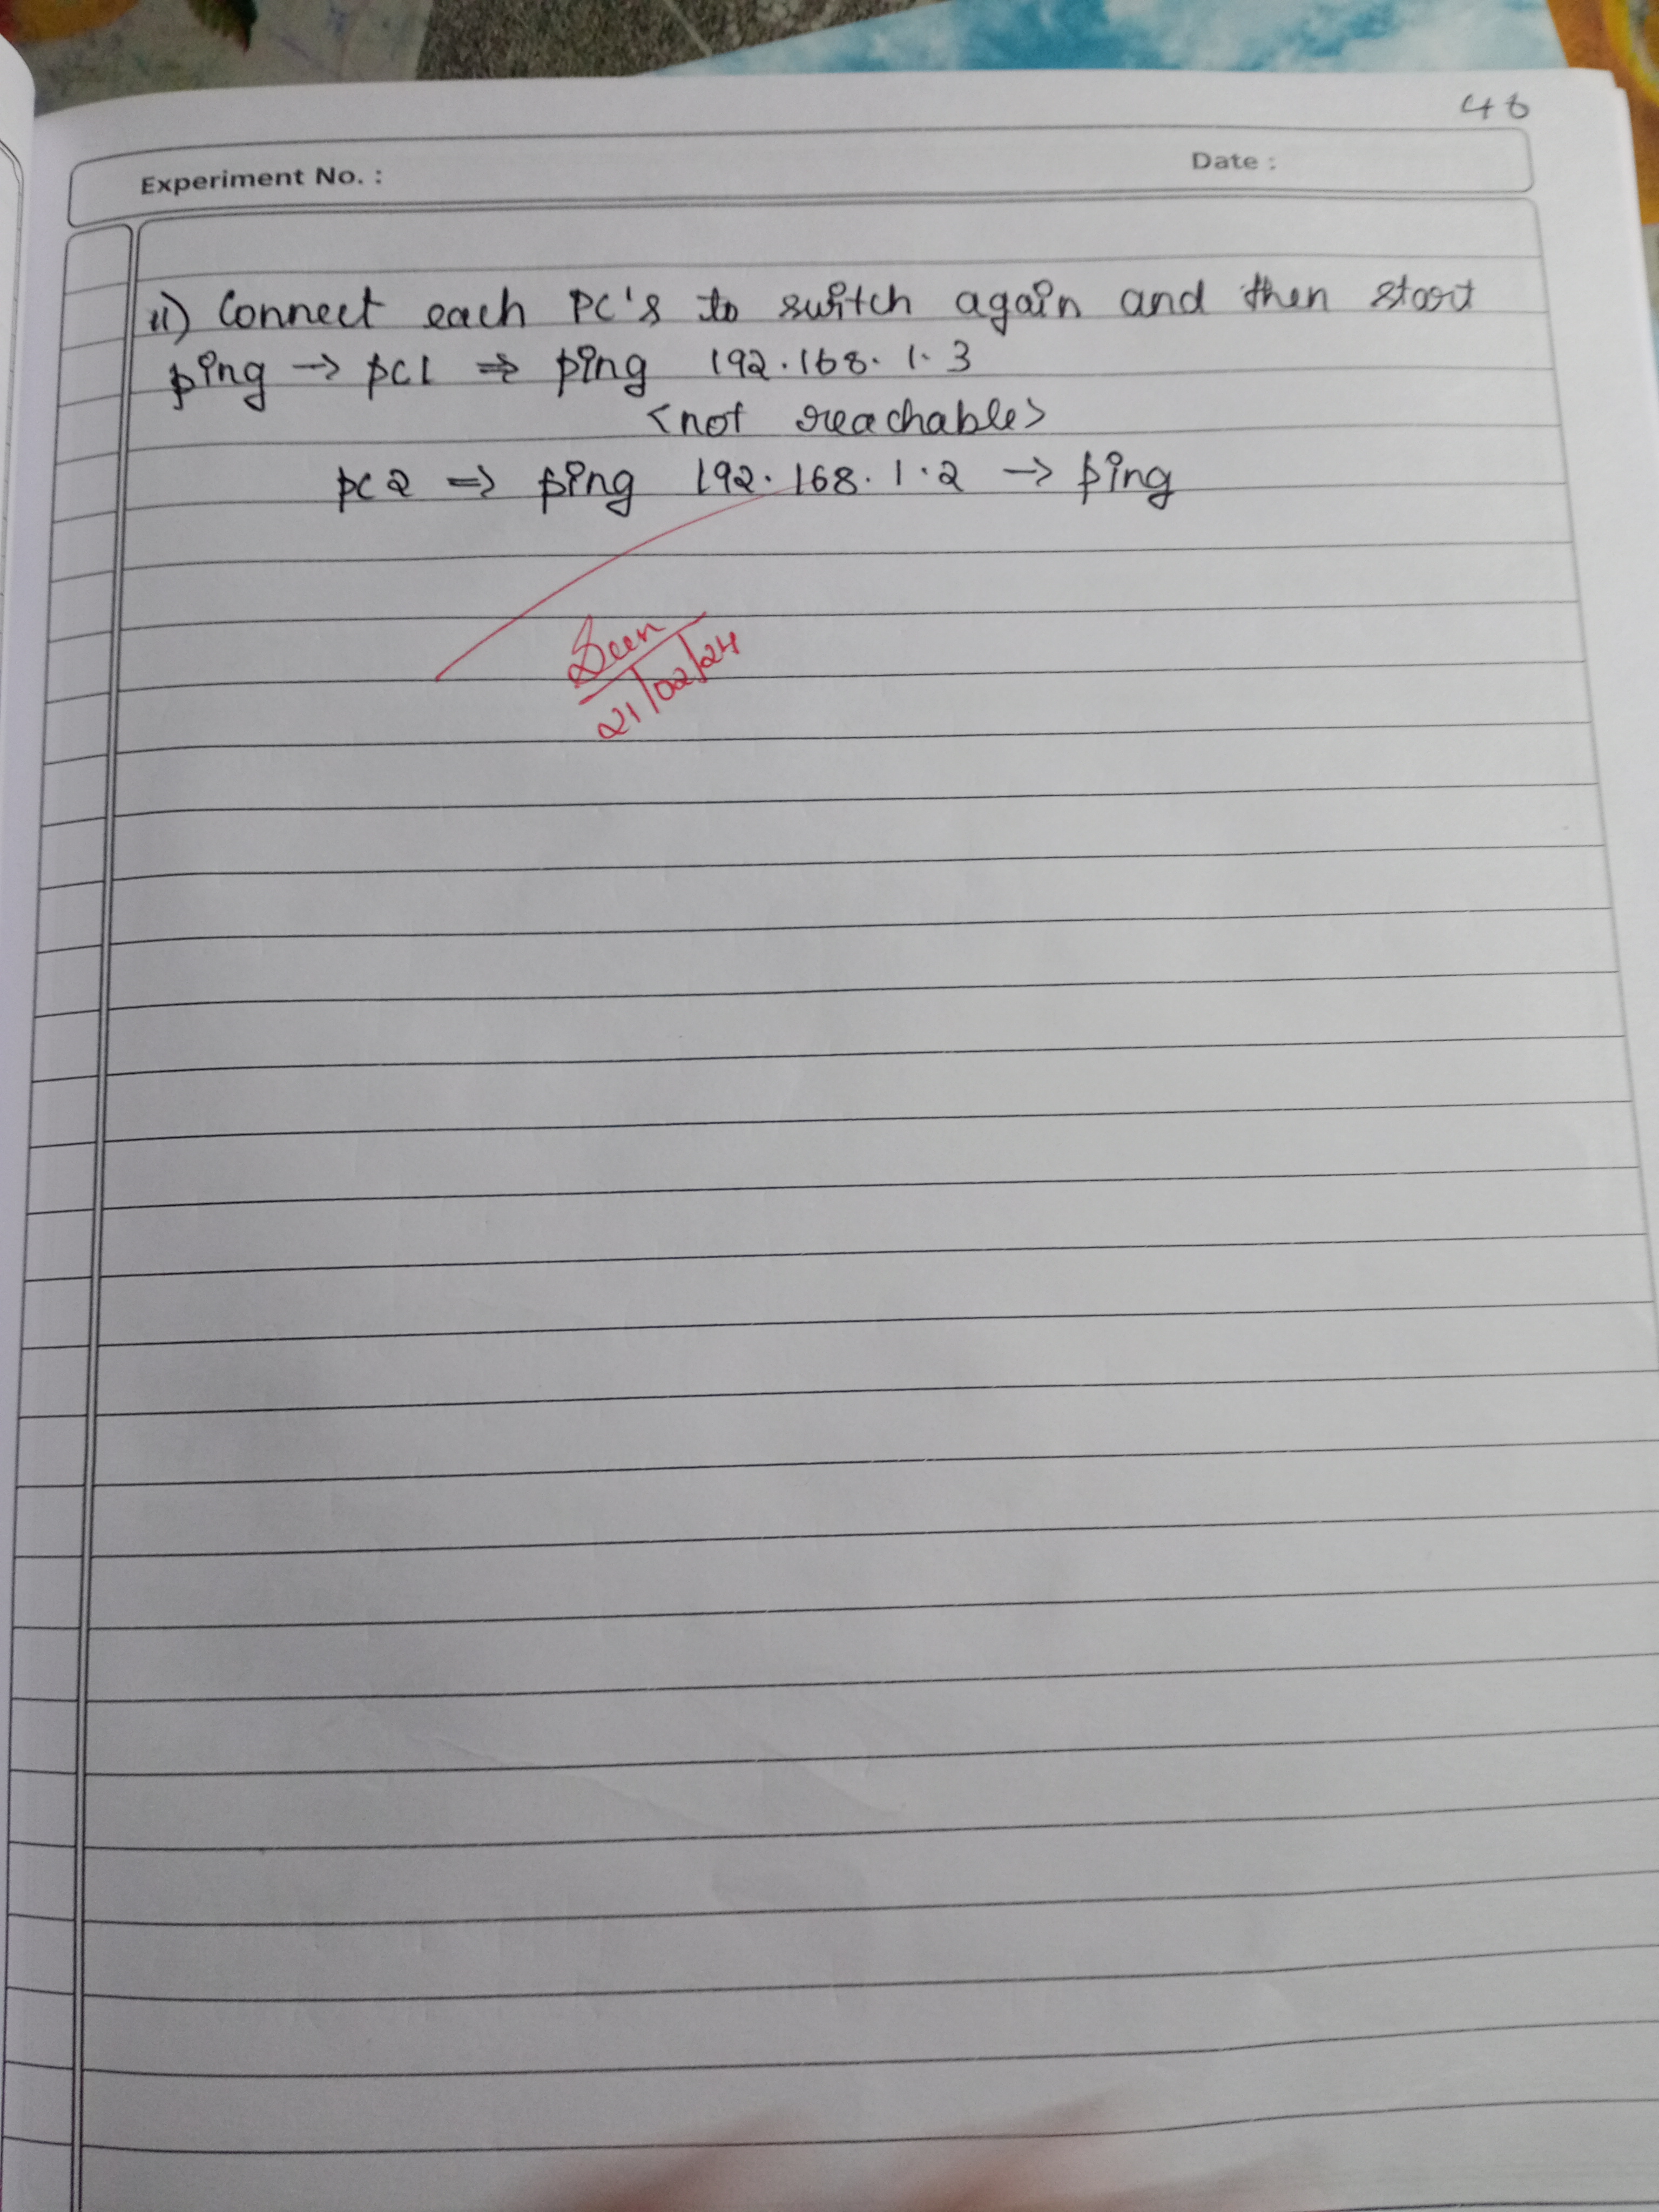 46
Experiment No. :
Date :
11) Connect each PC's to switch again and then start
ping → pc1 ⇒ ping 192.168.1.3
<not reachable>
pc2 ⇒ ping 192.168.1.2 → ping
Seen
21/02/24